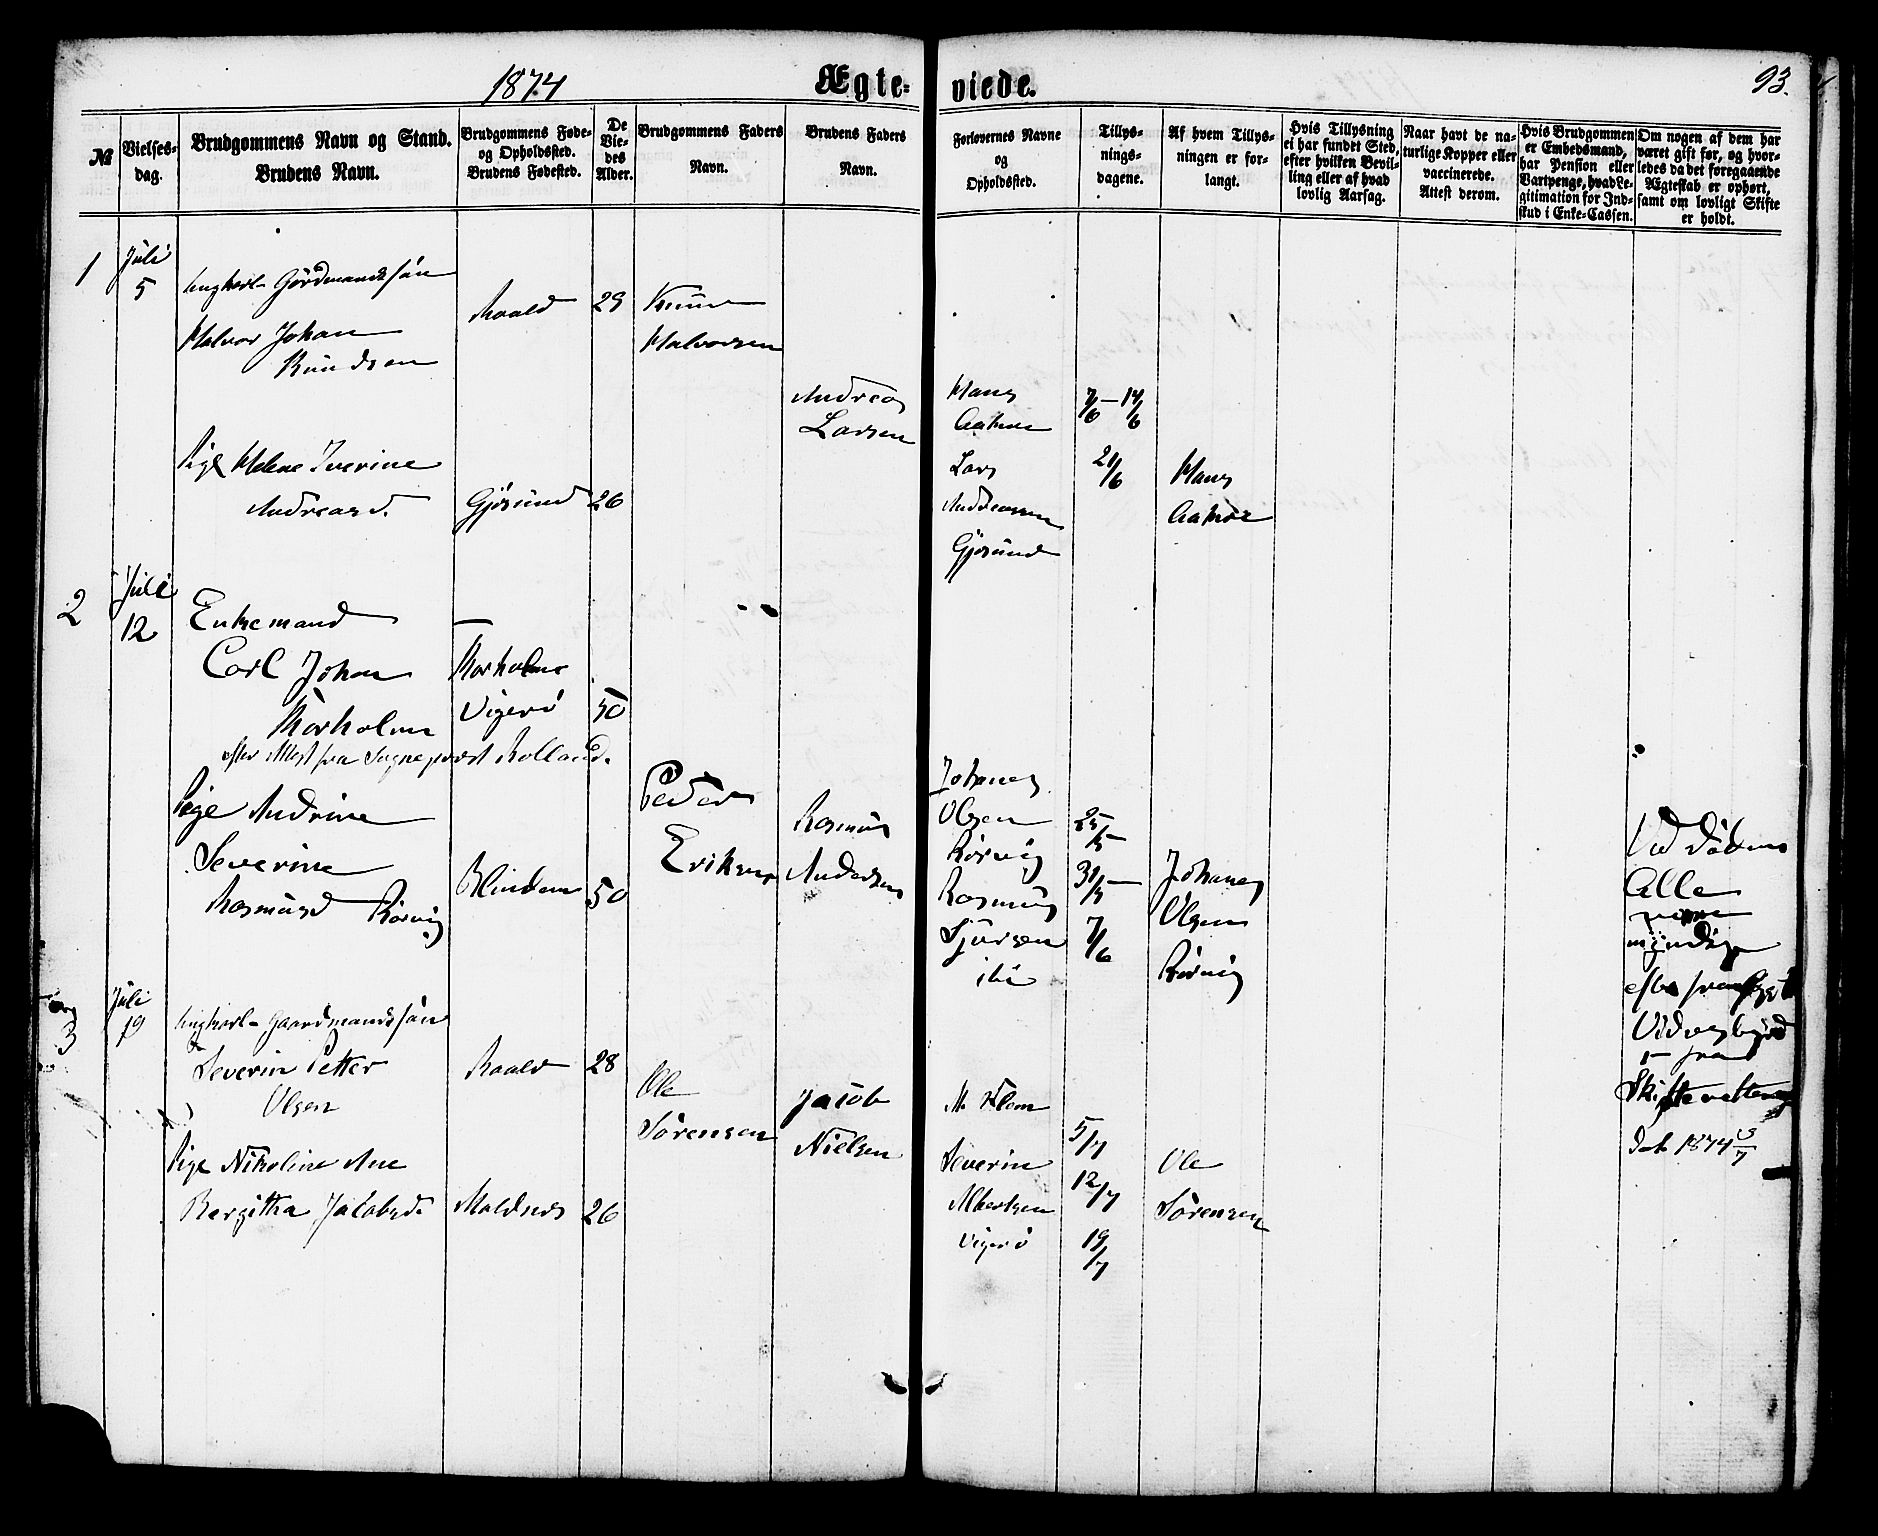 1874
Ægte-
viede.
93.
№
Vielses-
dag.
Brudgommens Navn og Stand.
Brudens Navn.
Brudgommens Føde-
og Opholdssted.
Brudens Fødested.
De
Vie-
des
Alder.
Brudgommens Faders
Navn.
Brudens Faders
Navn.
Forlovernes Navne
og
Opholdssted.
Tillys-
nings-
dagene.
Af hvem Tillys-
ningen er for-
langt.
Hvis Tillysning
ei har fundet Sted,
efter hvilken Bevil-
ling eller af hvad
lovlig Aarsag.
Naar havt de na-
turlige Kopper eller
vaccinerede.
Attest derom.
Hvis Brudgommen
er Embedsmand,
har Pension eller
Vartpenge, hvad Le-
gitimation for Ind-
skud i Enke-Cassen.
Om nogen af dem har
været gift før, og hvor-
ledes da det foregaaende
Ægteskab er ophørt,
samt om lovligt Skifte
er holdt.
1
Juli
5
Ungkarl Gårdmandssön
Halvor Johan
Knudsen
Roald
29
Knud
Halvorsen
Pige Helene Iverine
Andreasd.
Gjøsund
26
Andreas
Larsen
Hans
Lars
Andreassen
Gjøsund
7/6 — 14/6
21/6
Hans
2
Juli
12
Enkemand
Carl Johan
Korsholm
Vigerö
50
efter Attest fra Sogneprest Rolland.
Peder
Eriksen
Pige Andrine
Severine
Rasmusd Rörvig
Blindem
50
Rasmus
Andersen
Johanes
Olsen
Rörvig
Rasmus
Sjursen
ibi
25/5
31/5 —
7/6
Johanes
Olsen
Rörvig
Ved Döden
Alle
myndige
Skifteretten
Dat. 1874 3/7
3
Juli
19
Ungkarl Gaardmandssön
Severin Petter
Olsen
Roald
28
Ole
Sörensen
Pige Nikoline Ane
Bergitha Jakobsd.
Moldnes
26
Jacob
Nielsen
M. Klem
Severin
Albertsen
Vigerö
5/7
12/7
19/7
Ole
Sörensen